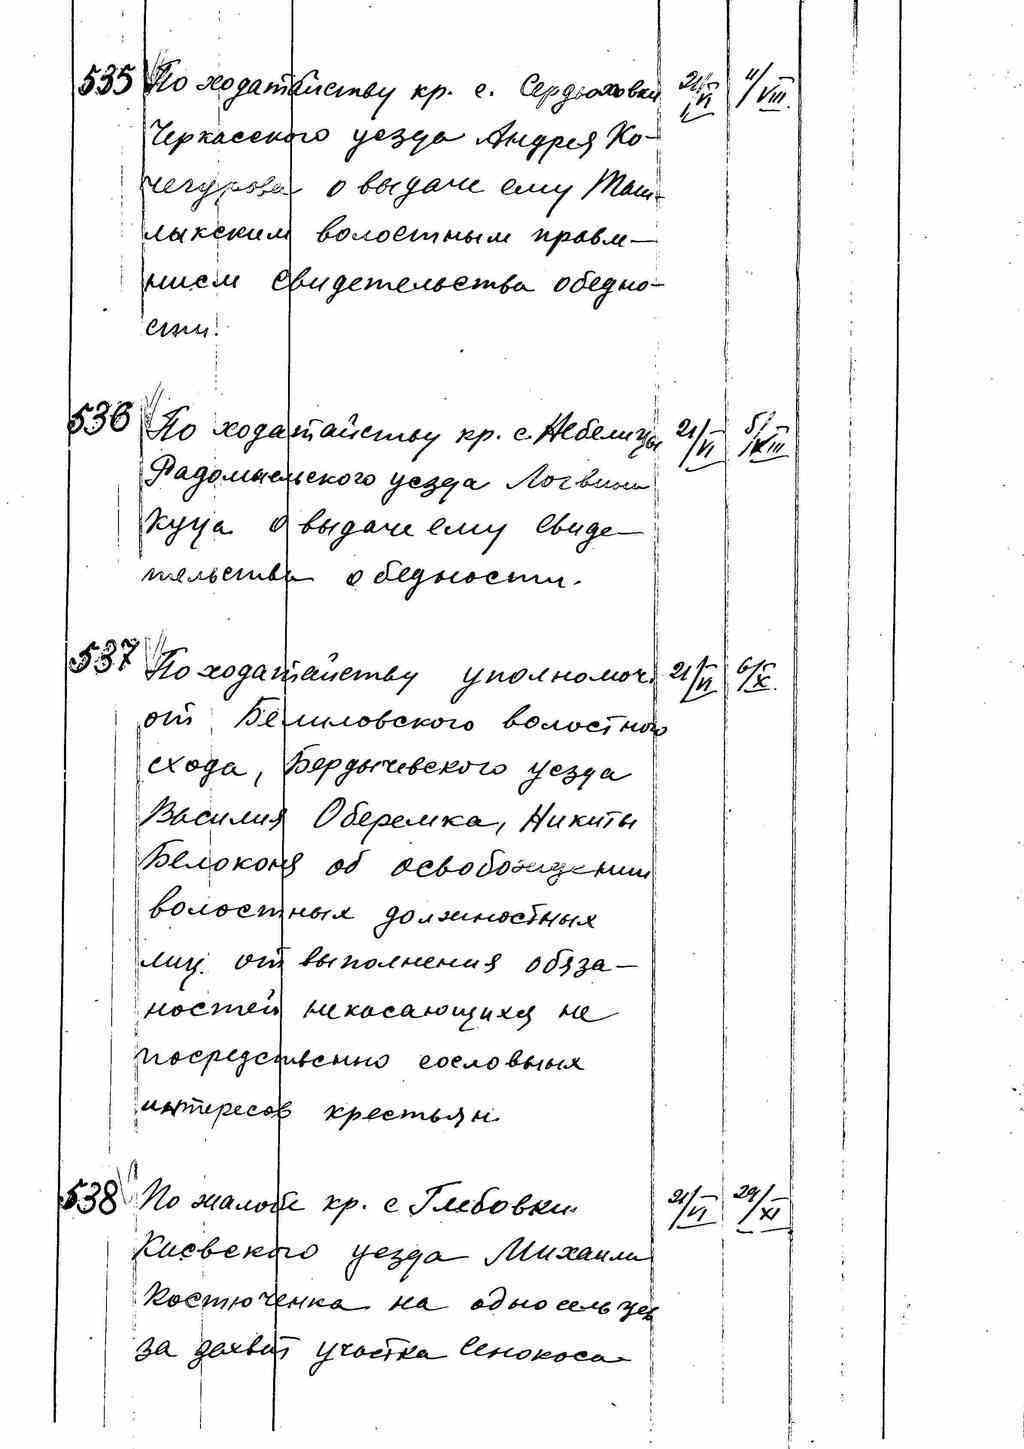 535 По ходатайству кр. с. Сердюховки 21/VI 11/VIII.
Черкасского уезда Андрея Ко-
чегурова о выдаче ему Таш-
лыкским волостным правле-
нием свидетельства о бедно-
сти.
536 По ходатайству кр. с. Небелицы 21/VI 5/VIII
Радомысльского уезда Логвина
Куца о выдаче ему свиде-
тельства о бедности.
537 По ходатайству уполномоч. 21/VI 6/X.
от Белиловского волостного
схода, Бердычевского уезда
Василия Оберемка, Никиты
Белоконя об освобождении
волостных должностных
лиц от выполнения обяза-
ностей некасающихся не
посредственно сословных
интересов крестьян.
538 По жалобе кр. с Глебовки 21/VI 29/XI
Киевского уезда Михаила
Костюченка на односельцев
за захват участка сенокоса